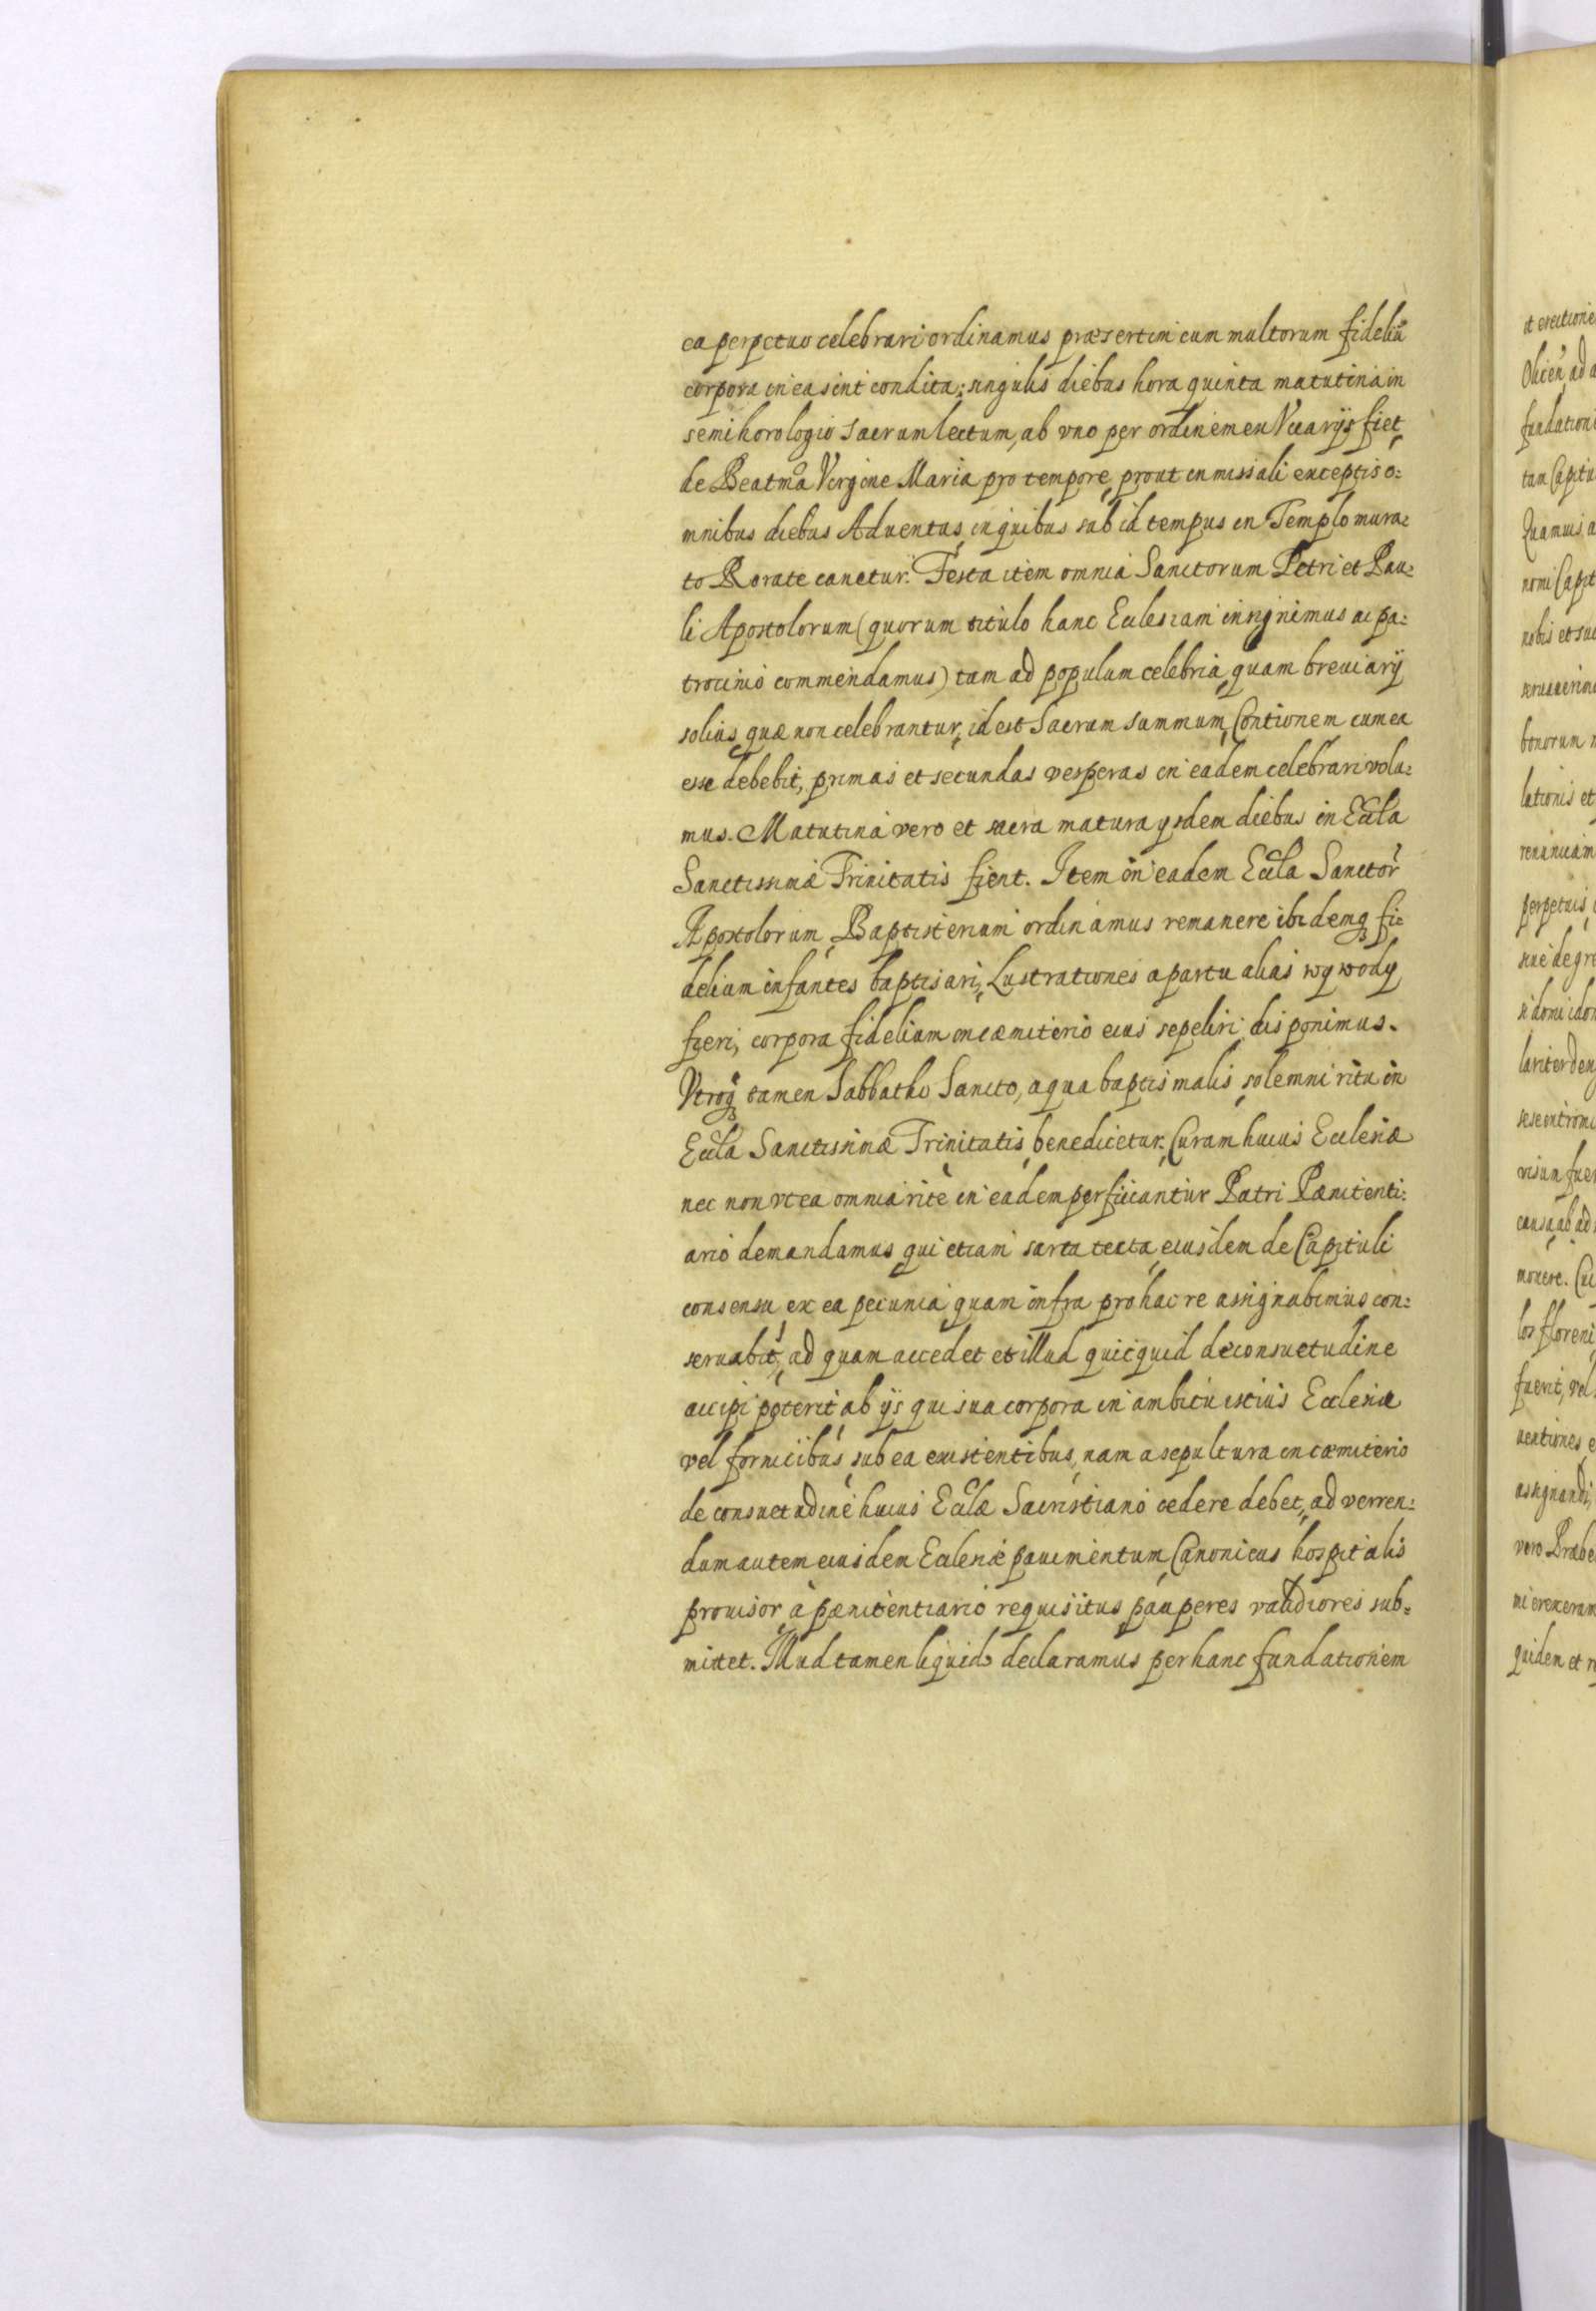 ea perpetuo celebrari ordinamus præsertim cum multorum fideliũ
corpora in ea sint condita; singulis diebus hora quinta matutina in
semihorologio sacrum lectum, ab vno per ordinem ex Vicarijs fiet,
de Beatmã Virgine Maria pro tempore, prout in missali exceptis o=
mnibus diebus Aduentus, in quibus sub id tempus in Templo mura=
to Rorate canetur. Festa item omnia Sanctorum Petri et Pau=
li Apostolorum (quorum titulo hanc Ecclesiam insignimus ac pa=
trocinio commendamus) tam ad populum celebria, quam breuiarij
solius, quæ non celebrantur, id est Sacrum summum, Contionem cum ea
esse debebit, primas et secundas vesperas in eadem celebrari volu=
mus. Matutina vero et sacra matura ysdem diebus in Eccla
Sanctissimæ Trinitatis fient. Item in eadem Eccla Sanctor
Apostolorum, Baptisterium ordinamus remanere ibidemq3 fi=
delium infantes baptisari, Lustrationes a partu alias wywody
fieri, corpora fidelium in cæmiterio eius sepeliri disponimus.
Vtroq3 tamen Sabbatho Sancto, aqua baptismalis, solemni ritu in
Eccla Sanctissimæ Trinitatis, benedicetur. Curam huius Ecclesiæ
nec non vt ea omnia ritè in eadem perficiantur Patri Pænitenti=
ario demandamus, qui etiam sarta tecta, eiusdem de Capituli
consensu ex ea pecunia quam infra pro hac re assignabimus con=
seruabit, ad quam accedet et illud quicquid de consuetudine
accipi poterit ab ijs qui sua corpora in ambitu istius Ecclesiæ
vel fornicibus, sub ea existentibus, nam a sepultura in cæmiterio
de consuetudine huius Ecclæ Sacristiano cedere debet, ad verren=
dum autem eiusdem Ecclesiæ pauimentum, Canonicus hospitalis
prouisor, à pænitentiario requisitus, pauperes validiores sub=
mittet. Illud tamen liquido declaramus per hanc fundationem